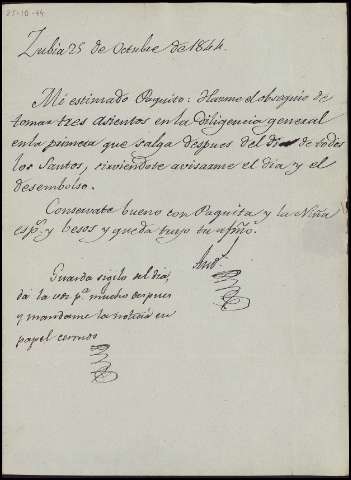 25-10-44
Zubia 25 de Octubre de 1844.
Mi estimado Paquito: Hazme el obsequio de
tomar tres asientos en la diligencia general
en la primera que salga despues del dia de todos
los Santos, sirviendote avisarme el dia y el
desembolso.
Conservate bueno con Paquita y la Niña
esp.ˢ y besos y queda tuyo tu afmo.
Ant.º
Guarda sigilo del dia,
da la voz p.ª mucho despues
y mandame la noticia en
papel cerrado